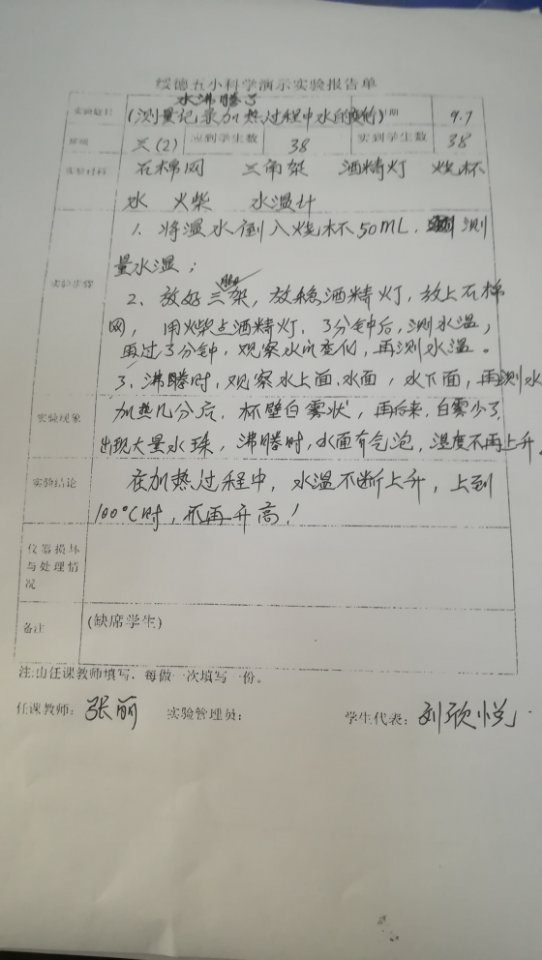 绥德五小科学演示实验报告单
实验题目 水沸腾了 期 9.7
(测量记录加热过程中水的变化)
班级 三(2) 应到学生数 38 实到学生数 38
实验材料 石棉网 三角架 酒精灯 烧杯
水 火柴 水温计
实验步骤
1、将温水倒入烧杯50mL, 测
量水温;
2、放好三架,放稳酒精灯,放上石棉
网,用火柴点酒精灯,3分钟后,测水温,
再过3分钟,观察水的变化,再测水温。
3、沸腾时,观察水上面,水面,水下面,再测水
实验现象 加热几分后,杯壁白雾状,再后来,白雾少了,
出现大量水珠,沸腾时,水面有气泡,温度不再上升。
实验结论 在加热过程中,水温不断上升,上到
100℃时,不再升高!
仪器损坏
与处理情
况
备注 (缺席学生)
注:由任课教师填写,每做一次填写一份。
任课教师: 张丽 实验管理员: 学生代表: 刘欣悦